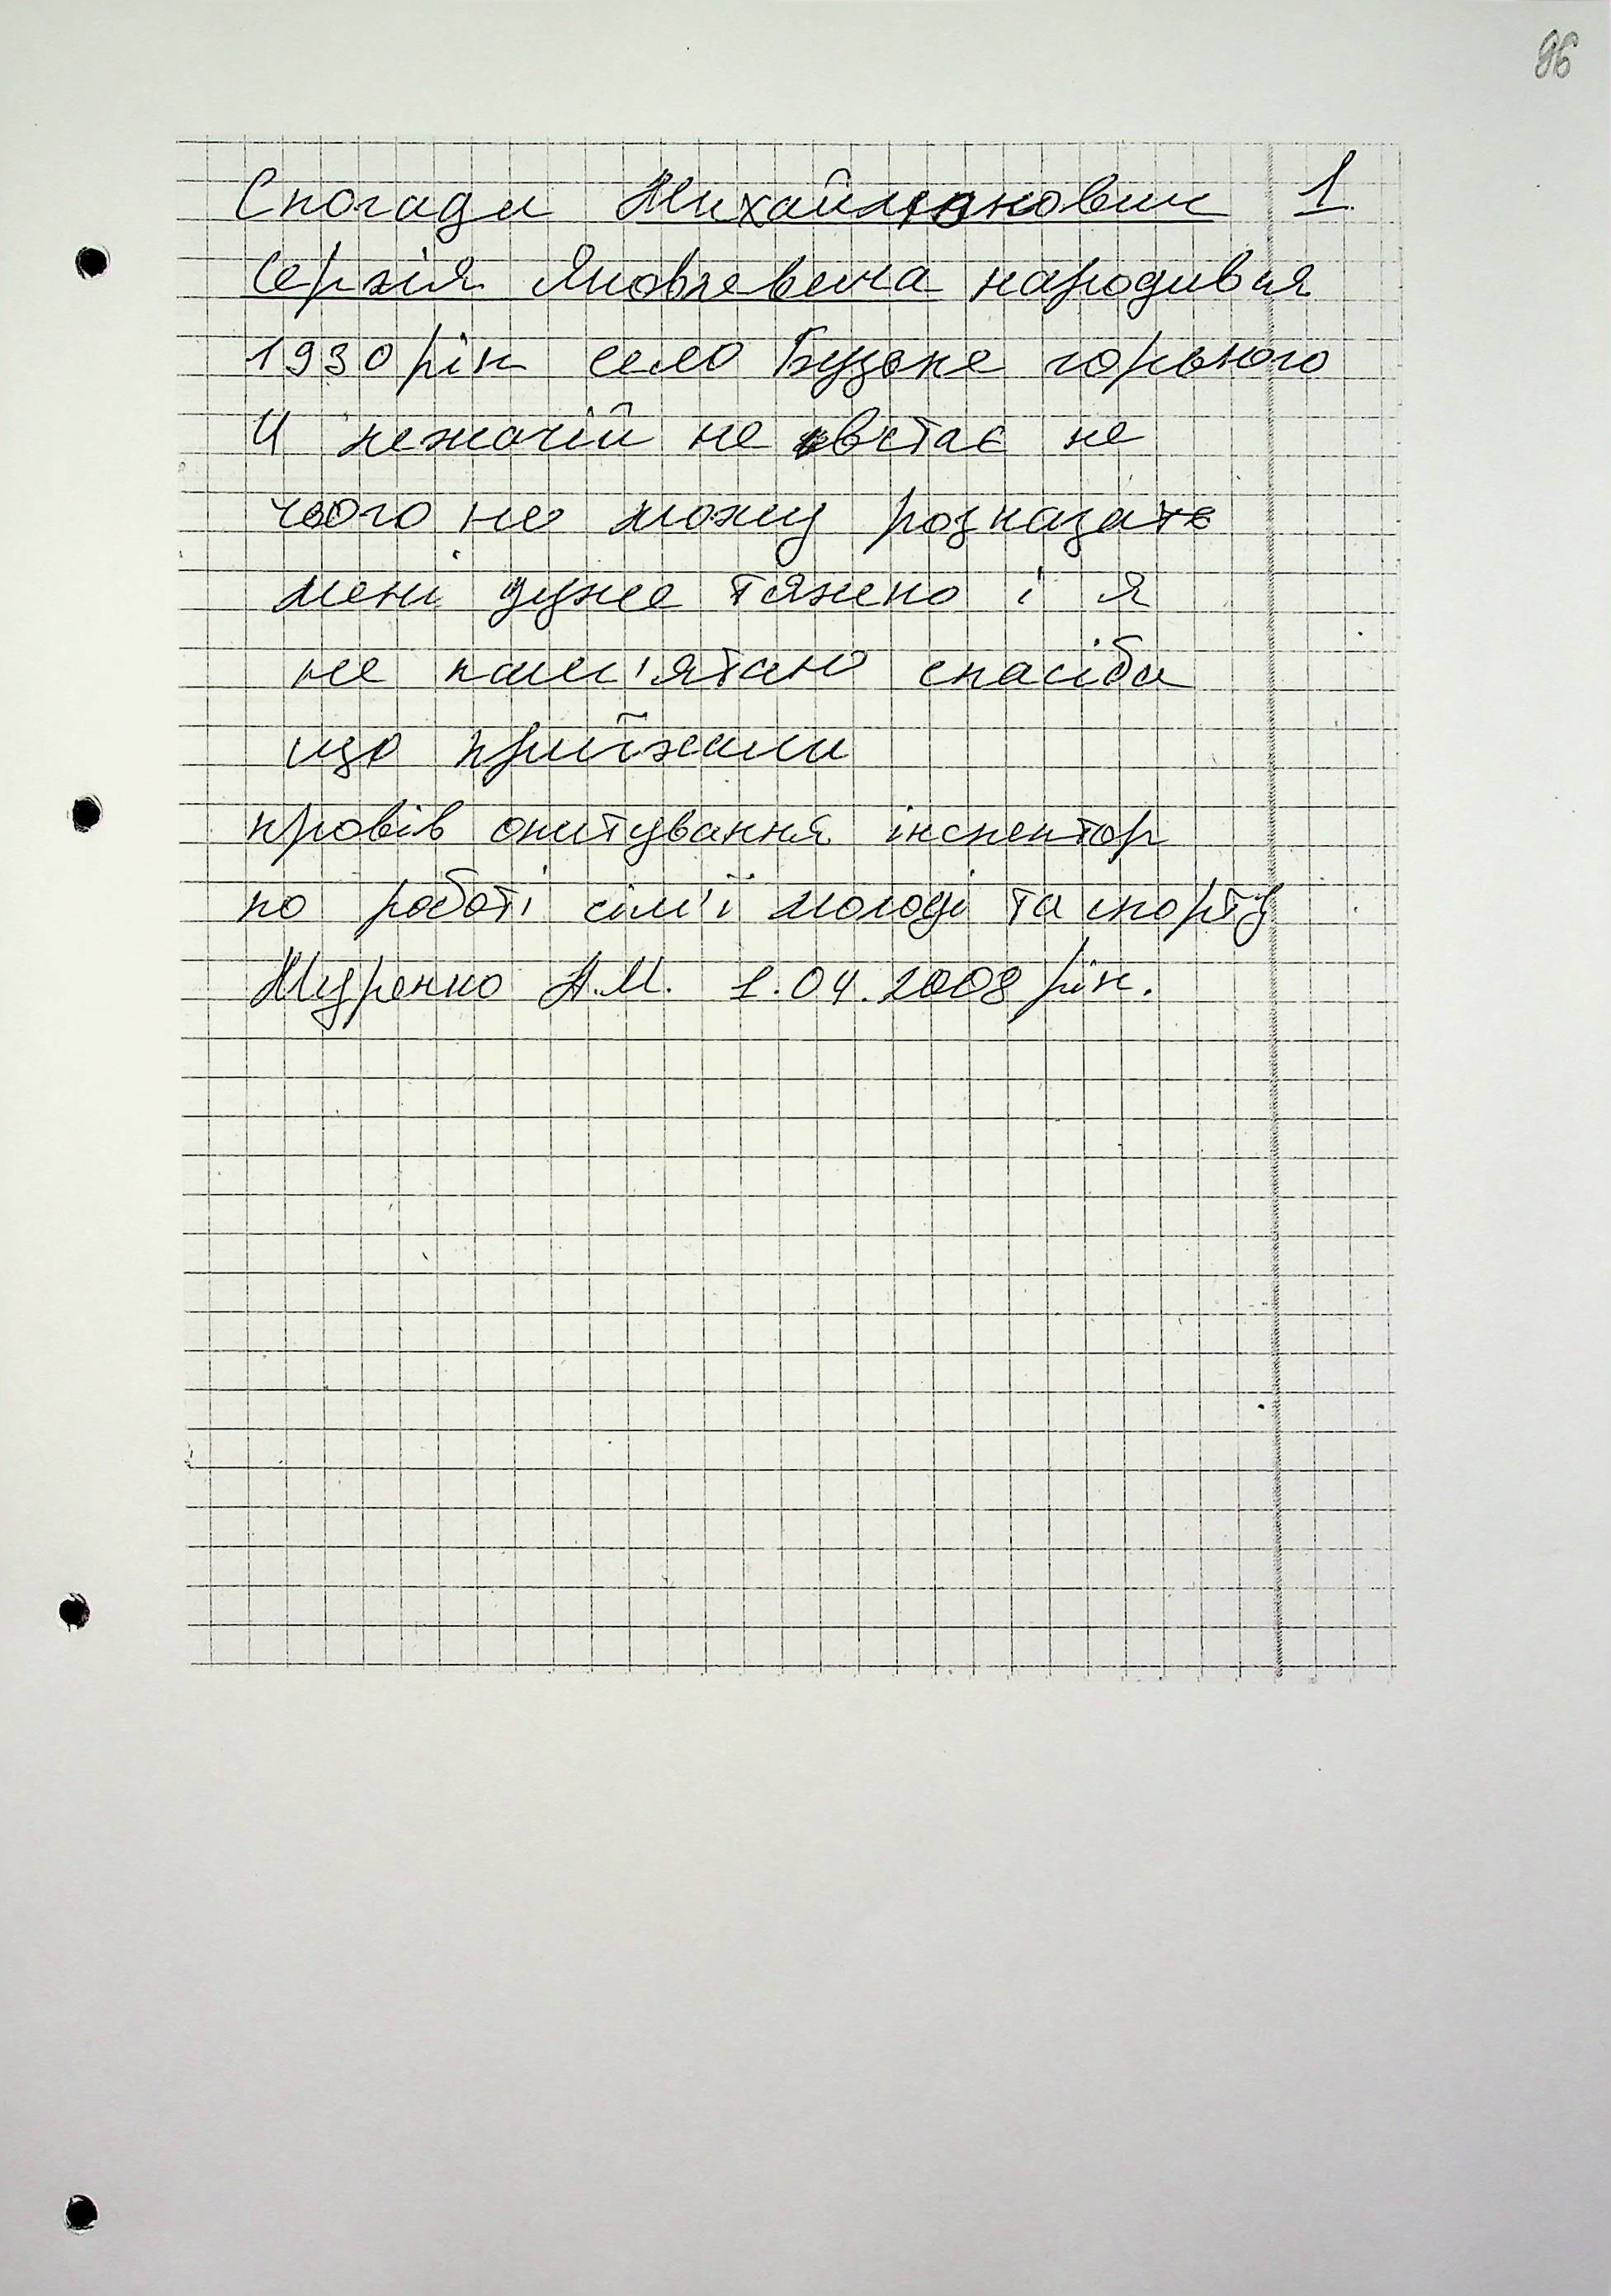 96
Спогади Михайлюкович 1
Сергія Яковлевича народився
1930 рік село Бузьке горького
4 лежачій не встає не
чого не можу розказать
мені дуже тяжко і я
не пам'ятаю спасіба
що приїжали
провів опитування інспектор
по роботі сім'ї молоді та спорту
Муренко А.М. 1.04.2008 рік.